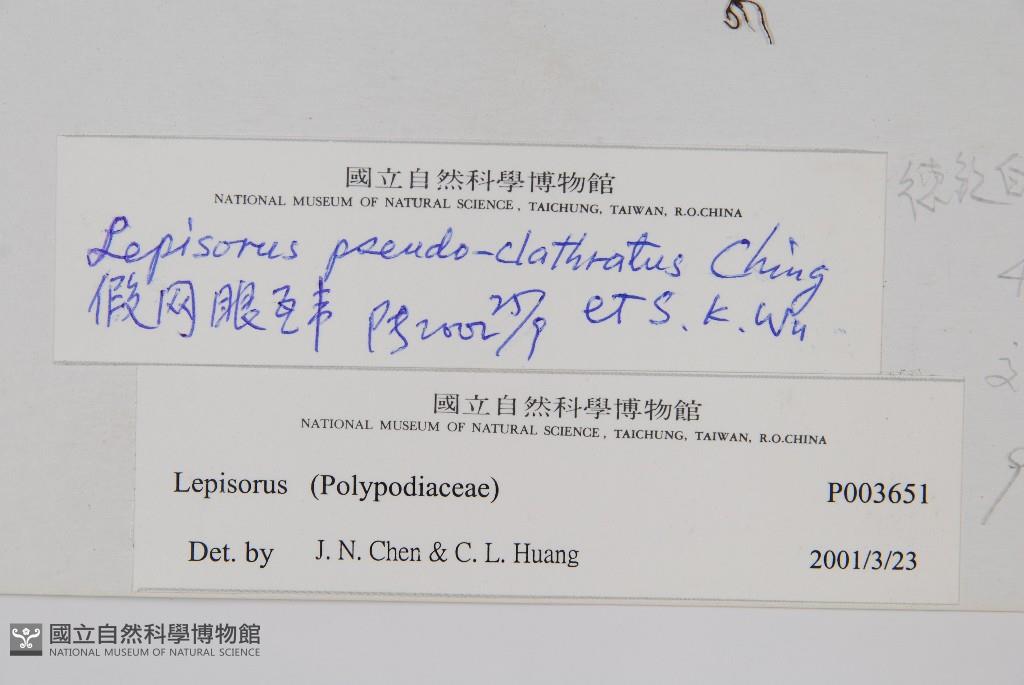 國立自然科學博物館
NATIONAL MUSEUM OF NATURAL SCIENCE, TAICHUNG, TAIWAN, R.O.CHINA
Lepisorus pseudo-clathratus Ching
假网眼瓦韦 2002 25/9 et S. K. Wu
德钦
國立自然科學博物館
NATIONAL MUSEUM OF NATURAL SCIENCE, TAICHUNG, TAIWAN, R.O.CHINA
Lepisorus (Polypodiaceae) P003651
Det. by J. N. Chen & C. L. Huang 2001/3/23
國立自然科學博物館
NATIONAL MUSEUM OF NATURAL SCIENCE